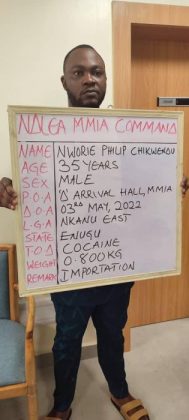 NDLEA MMIA COMMAND
NAME NWORIE PHILIP CHIKWEKOU
AGE 35 YEARS
SEX MALE
P.O.A 'D' ARRIVAL HALL, MMIA
D.O.A 03RD MAY, 2022
L.G.A NKANU EAST
STATE ENUGU
T.O.D COCAINE
WEIGHT 0.800KG
REMARK IMPORTATION